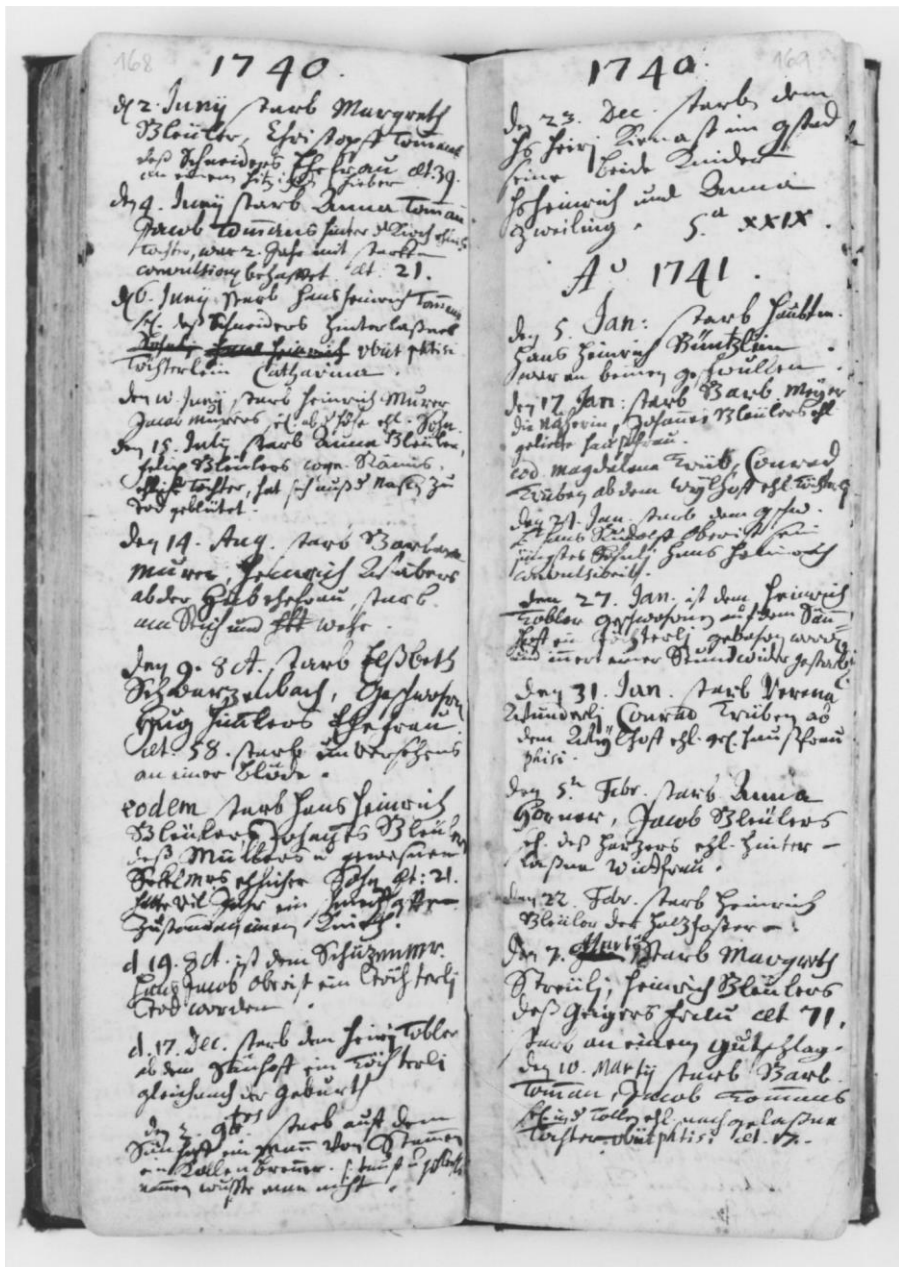 168
1740.
d 2. Juny starb Margreth
Bleüler, Christoph Tomans
deß Schneiders Ehefrau æt. 39.
an einem hitzigen fieber
den 4. Juny starb Anna Toman
Jacob Tomans hinder d Kirch ehl.
Tochter, war 2. Jahr mit starken
convulsionen behafftet æt. 21.
d 6. Juny starb Hans Heinrich Toman
sel. deß Schneiders hinterlaßnes
obiit phtisi
Töchterlein Catharina.
den Juny starb Heinrich Murer
Jacob Murers sel. ehl. Sohn.
den 15. July starb Anna Bleüler,
Felix Bleülers
ehliche Tochter, hat sich auß d Nasen zu
Tod geblütet.
den 14. Aug. starb Barbara
Murer, Heinrich Wäbers
ab der Hub ehefrau starb
am Stich und wehe.
den 9. 8ct. starb Elßbeth
Schwarzenbach, Geschworen
Hug Ehefrau
æt. 58. starb unversehens
an einer blöde.
eodem starb Hans Heinrich
Bleüler, Johanes Bleülers
deß Müllers u. gewesnen
Sekelmrs ehlicher Sohn æt: 21.
hatte vil Jahr ein
d 19. 8ct. ist dem Schüzenmr.
Hans Jacob Obrist ein Töchterlj
Tod worden.
d. 17. Dec. starb dem Heirj Tobler
ab dem Sünhoff ein Töchterlj
gleich nach der Geburth
den 2. 9bris starb auf dem
Sünhoff ein Mann von Stamen
ein Kollenbrenner.
namen wußte man nicht.
169
1740.
den 23. Dec. starb dem
Hs Heirj Kienast im Gstad
seine beide Kinder
Hs Heinrich und Anna
Zwilling. S.a XXIX.
Ao 1741.
den 5. Jan: starb Haubtm.
Hans Heinrich Büntzlin
war an beinen geschwullen.
den 17. Jan: starb Barb. Meyer
die Näherin, Johannes Bleülers ehl
geliebte haußfrau.
eod. Magdalena Trüb, Conrad
Trüben ab dem Wylhoff ehl. Tochter
den 21. Jan. starb dem gschw.
Hans Rudolff Obrist sein
jüngstes Söhnlj Hans Heinrich
convulsivisch.
den 27. Jan. ist dem Heinrich
Tobler geschwornen auf dem Sün-
hoff ein Töchterlj geboren worden
und innert einer Stund wider gestorben
den 31. Jan. starb Verena
Wunderlj Conrad Trüben ab
dem Wylhoff ehl. gel. haußfrau
phtisi.
den 5ten Febr. starb Anna
Horner, Jacob Bleülers
sel. deß Harzers ehl. hinter-
laßne Witfrau.
den 22. Febr. starb Heinrich
Bleüler der Holzforster.
den 7. Marty starb Margreth
Streülj, Heinrich Bleülers
deß Geigers Frau æt 71.
starb an einem gutschlag.
den 10. Marty starb Barb.
Toman, Jacob Tomans
ehl. nachgelaßne
Tochter. obiit phtisi æt.